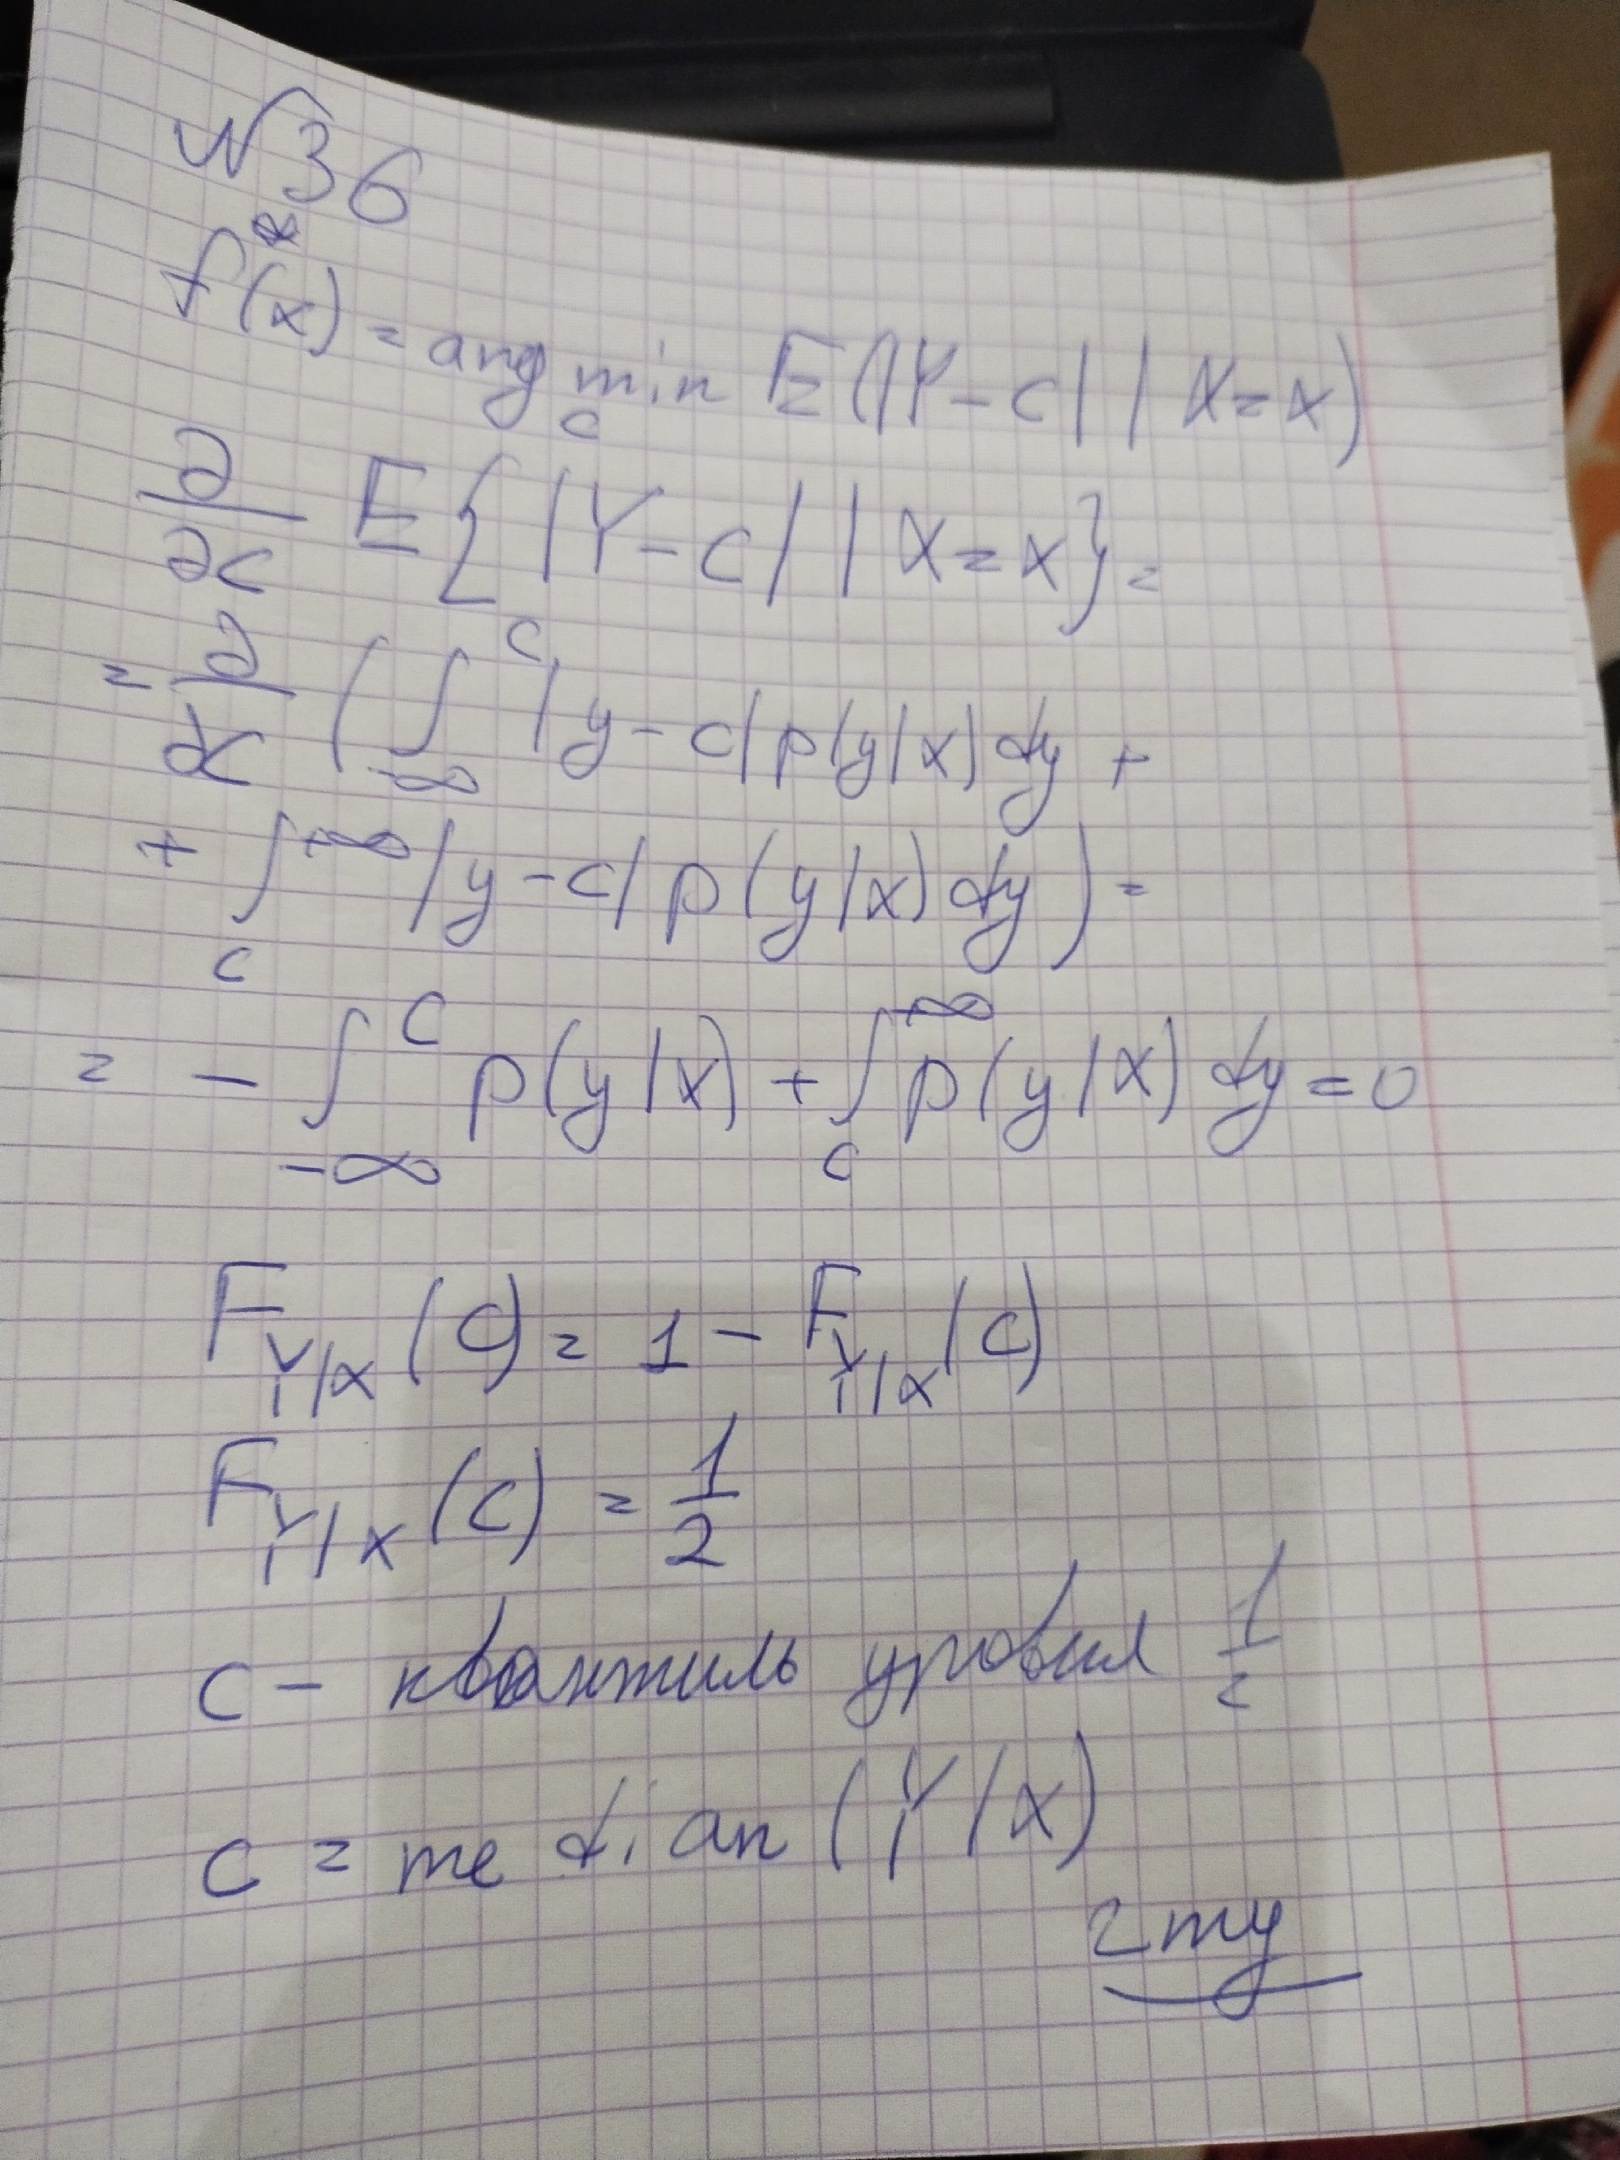 №36
f*(x) = arg min_c E(|Y-c| | X=x)
∂/∂c E{|Y-c| | X=x} =
= ∂/∂c (∫_{-∞}^{c} |y-c| p(y|x) dy +
+ ∫_c^{+∞} |y-c| p(y|x) dy) =
= - ∫_{-∞}^{c} p(y|x) + ∫_c^{+∞} p(y|x) dy = 0
F_{Y|X}(c) = 1 - F_{Y|X}(c)
F_{Y|X}(c) = 1/2
c - квантиль уровня 1/2
c = median (Y|X)
чтд